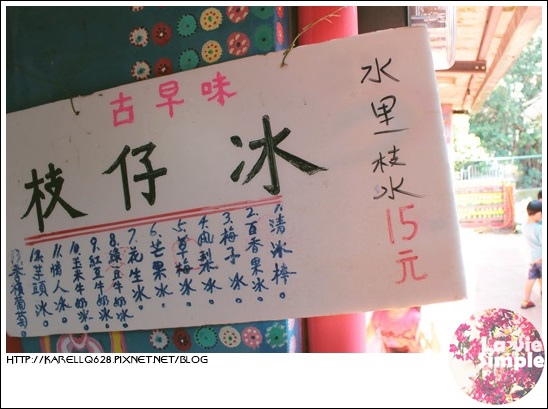 古早味
枝仔冰
水里一枝冰
15元
1.清冰棒。
2.百香果冰。
3.梅子冰。
4.鳳梨冰。
5.草莓冰。
6.芒果冰。
7.花生冰。
8.綠豆牛奶冰。
9.紅豆牛奶冰。
10.玉米牛奶冰。
11.情人冰。
12.芋頭冰。
葡萄。
HTTP://KARELLQ628.PIXNET.NET/BLOG
La vie
Simple